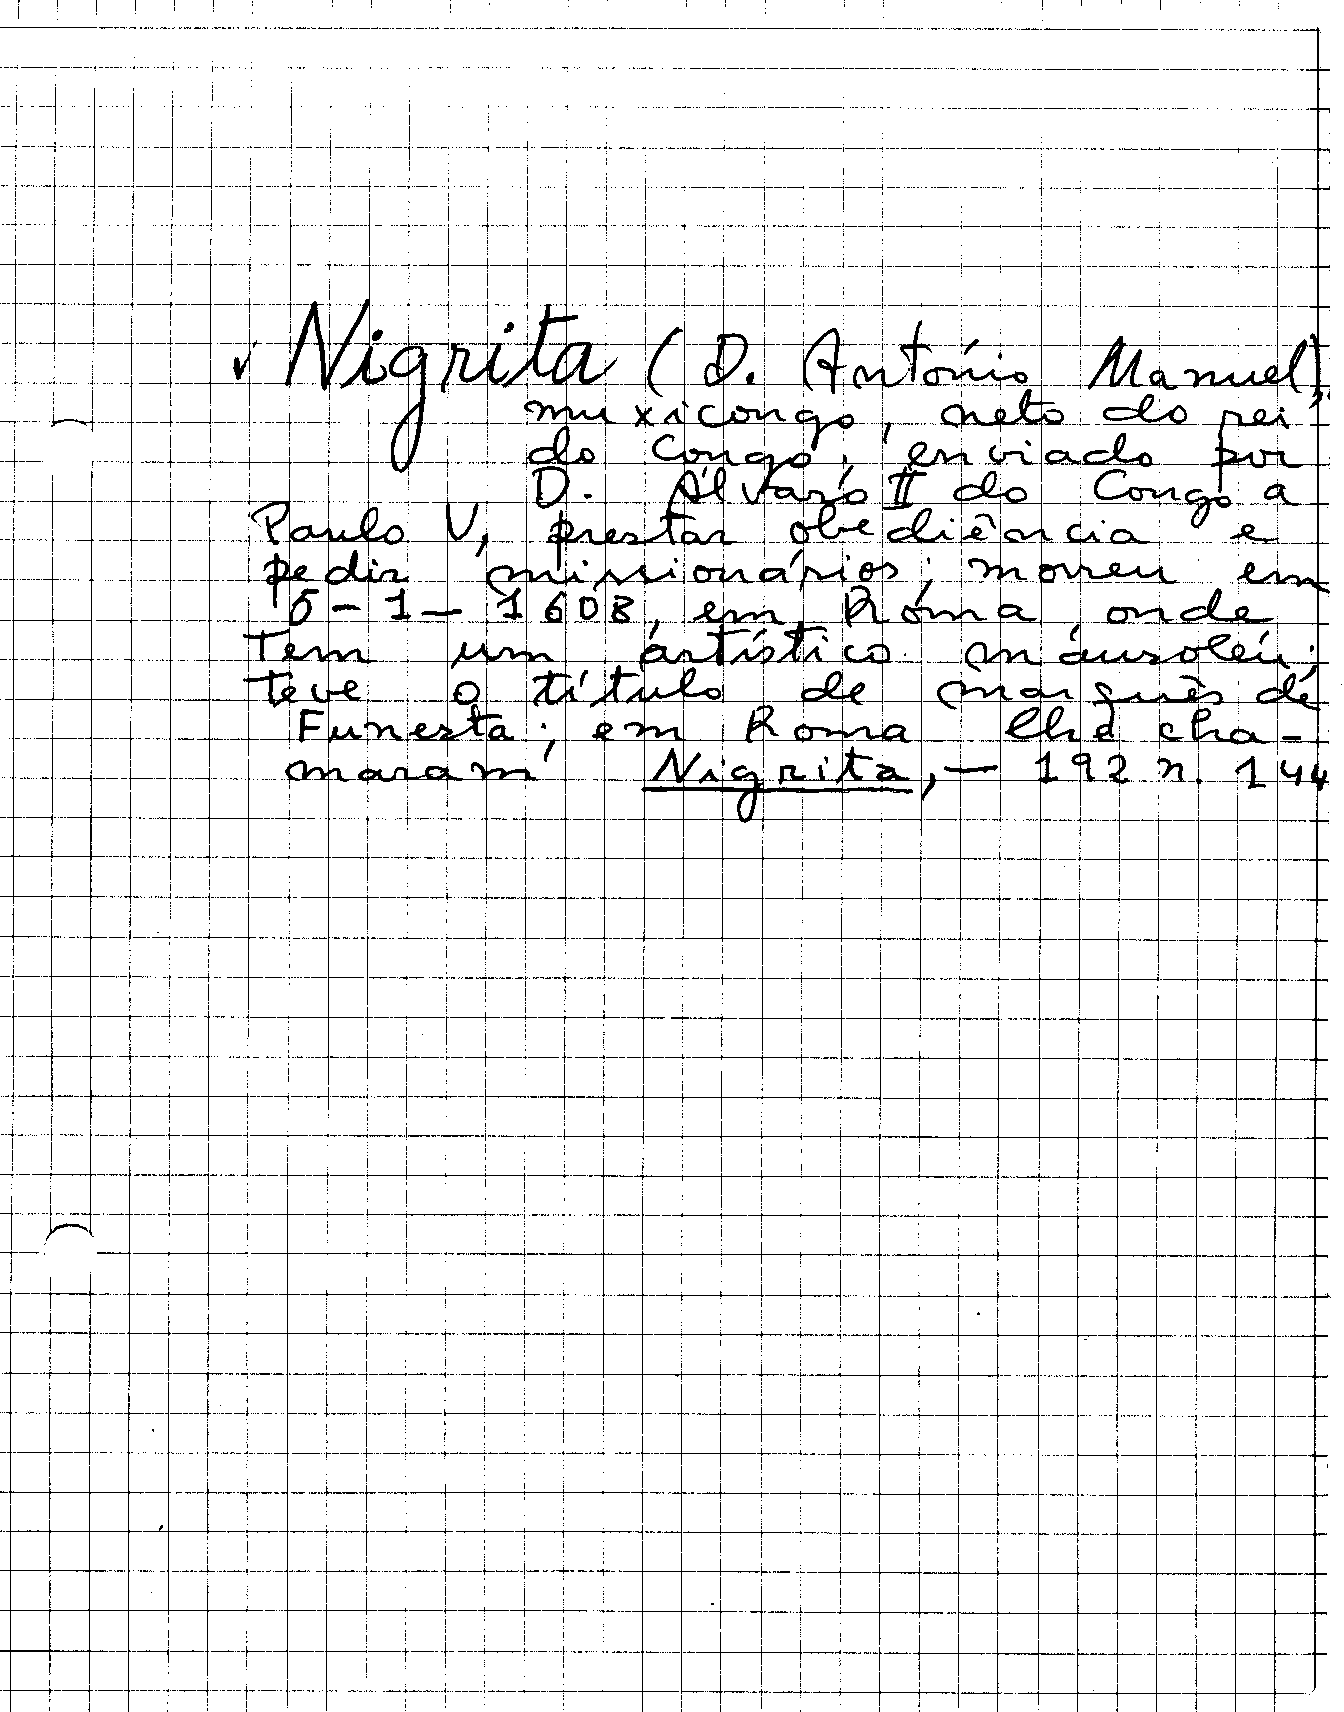 ✓ Nigrita (D. António Manuel),
muxicongo, neto do rei
do Congo, enviado por
D. Álvaro II do Congo a
Paulo V, prestar obediência e
pedir missionários; morreu em
5-1-1608, em Roma, onde
tem um artístico mausoléu;
teve o título de marquês de
Funesta; em Roma lhe cha-
maram Nigrita, — 192 n. 144